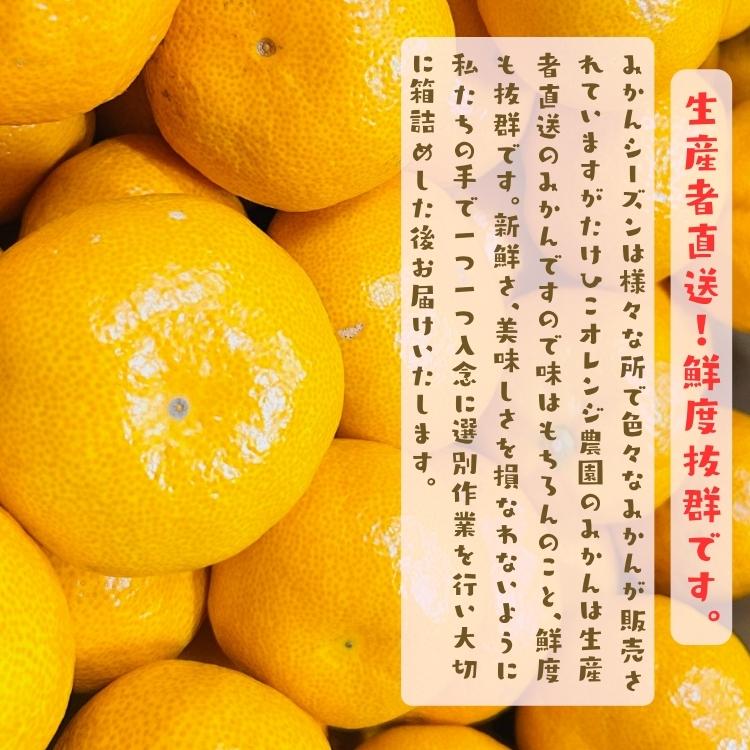 生産者直送！鮮度抜群です。
みかんシーズンは様々な所で色々なみかんが販売さ
れていますがたけひこオレンジ農園のみかんは生産
者直送のみかんですので味はもちろんのこと、鮮度
も抜群です。新鮮さ、美味しさを損なわないように
私たちの手で一つ一つ入念に選別作業を行い大切
に箱詰めした後お届けいたします。